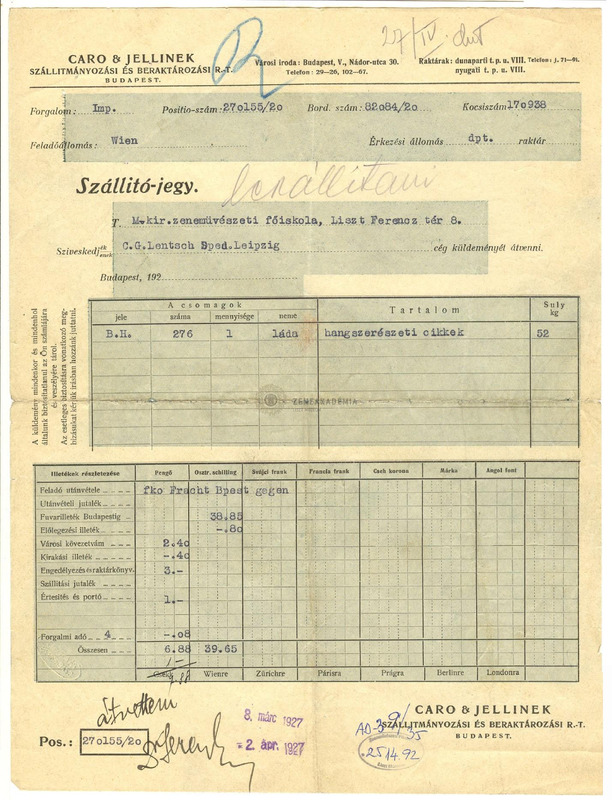 27/IV.
CARO & JELLINEK
SZÁLLITMÁNYOZÁSI ÉS BERAKTÁROZÁSI R.-T.
BUDAPEST.
Városi iroda: Budapest, V., Nádor-utca 30.
Telefon: 29—26, 102—67.
Raktárak: dunaparti t. p. u. VIII. Telefon: J. 71—
nyugati t. p. u. VIII.
Forgalom: Imp. Positio-szám: 27o155/2o Bord. szám: 82o84/2o Kocsiszám 17o938
Feladóállomás: Wien Érkezési állomás dpt. raktár
Szállitó-jegy.
T. M.kir.zenemüvészeti főiskola, Liszt Ferencz tér 8.
Sziveskedjék/enek C.G.Lentsch Sped.Leipzig cég küldeményét átvenni.
Budapest, 192
A küldemény mindenkor és mindenhol
általunk biztositatlanul az Ön számlájára
és veszélyére tárol.
Az esetleges biztositásra vonatkozó meg-
bizásukat kérjük irásban hozzánk juttatni.
A csomagok Tartalom Suly kg
jele száma mennyisége neme
B.H. 276 1 láda hangszerészeti cikkek 52
ZENEAKADÉMIA
Illetékek részletezése Pengő Osztr. schilling Svájci frank Francia frank Cseh korona Márka Angol font
Feladó utánvétele fko Fracht Bpest gegen
Utánvételi jutalék
Fuvarilleték Budapestig 38.85
Előlegezési illeték -.8o
Városi kövezetvám 2.4o
Kirakási illeték -.4o
Engedélyezés és raktárkönyv. 3.-
Szállitási jutalék
Értesités és portó 1.-
Forgalmi adó 4 -.o8
Összesen 6.88 39.65
1.-
Wienre Zürichre Párisra Prágra Berlinre Londonra
7.88
átvettem
8. márc 1927
= 2. ápr. 1927
Pos.: 27o155/2o
CARO & JELLINEK
SZÁLLITMÁNYOZÁSI ÉS BERAKTÁROZÁSI R.-T.
BUDAPEST.
2514.92